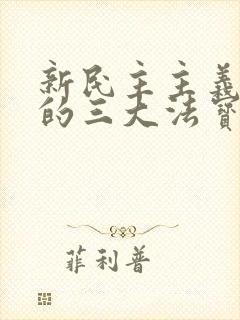 新民主主義
的三大法寶
菲利普